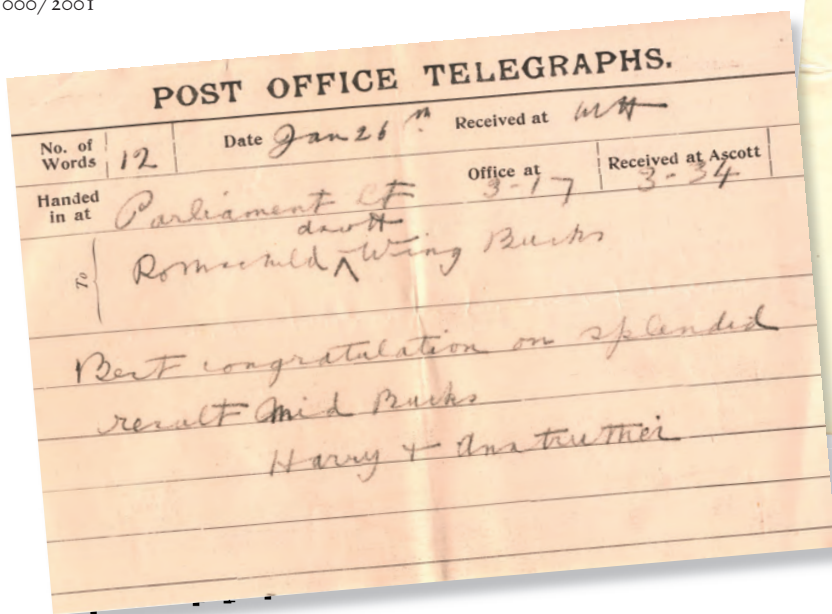 000/2001
POST OFFICE TELEGRAPHS.
No. of Words 12 Date Jan 26th Received at
Handed in at Parliament St Office at 3-17 Received at Ascott 3-34
To Rothschild Wing Bucks
Best congratulation on splendid
result Mid Bucks
Harry + Anstruther